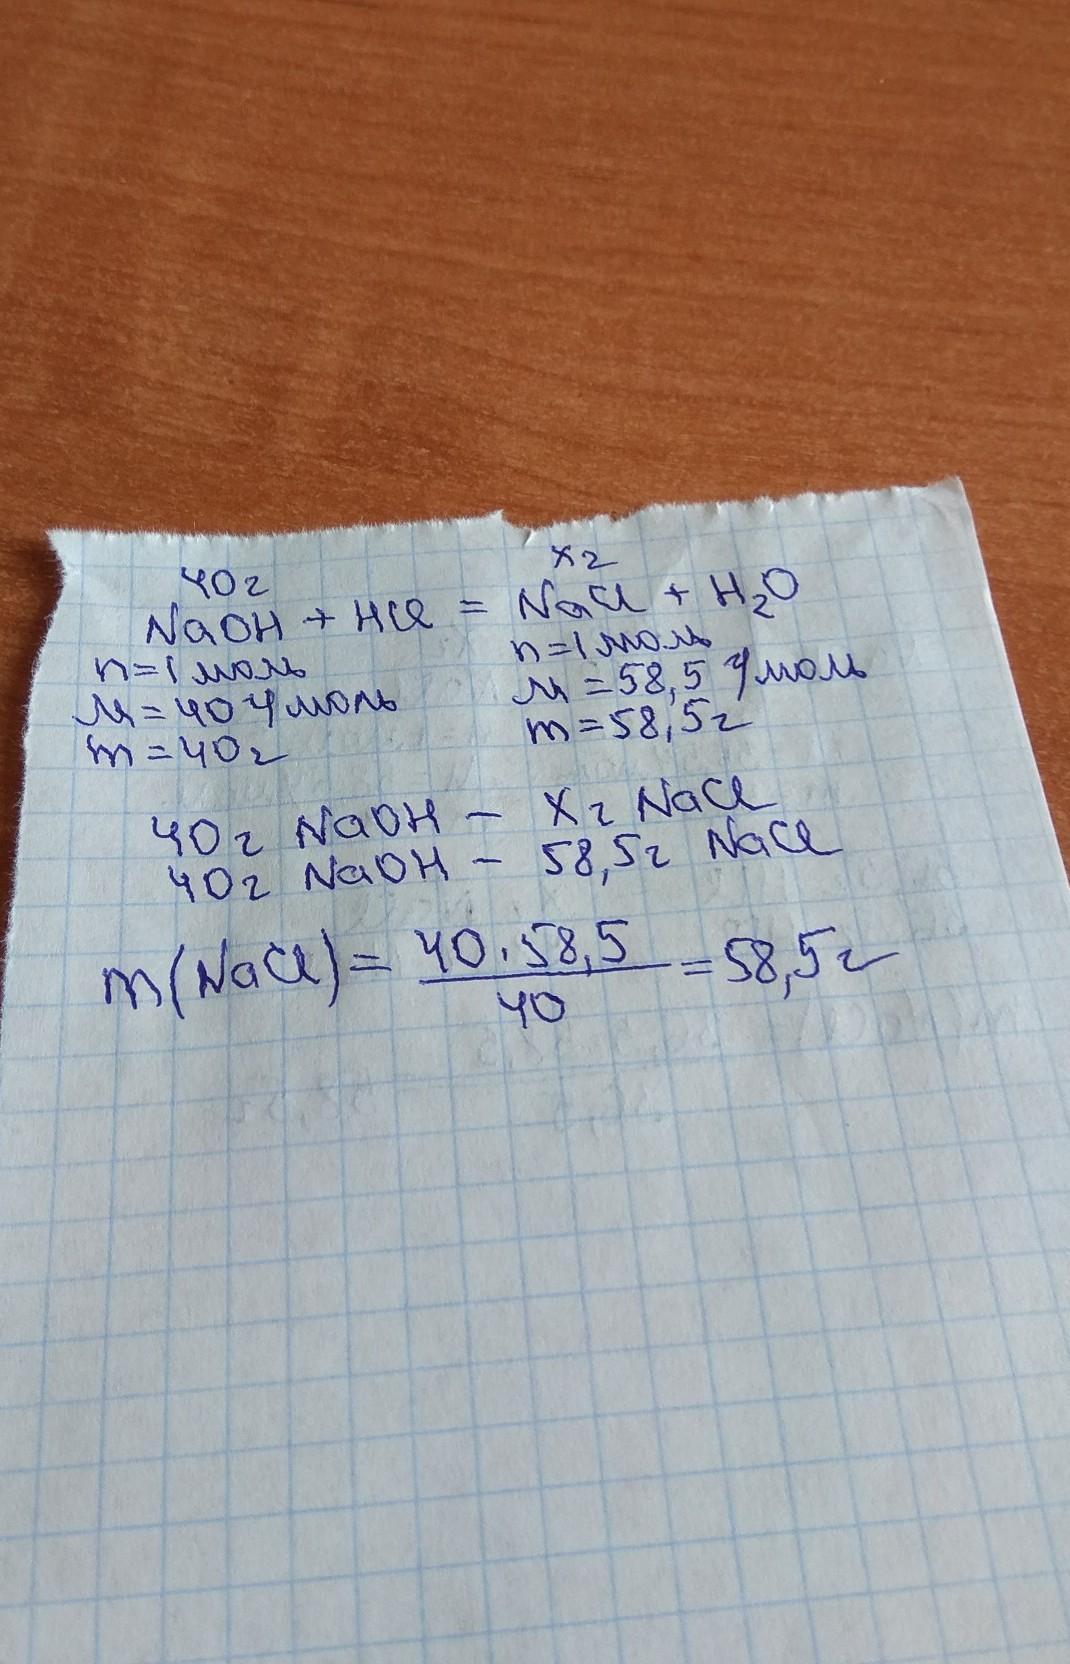 40г хг
NaOH + HCl = NaCl + H₂O
n=1моль n=1моль
M=40 г/моль M=58,5 г/моль
m=40г m=58,5г
40г NaOH – хг NaCl
40г NaOH – 58,5г NaCl
m(NaCl)= 40·58,5 =58,5г
40